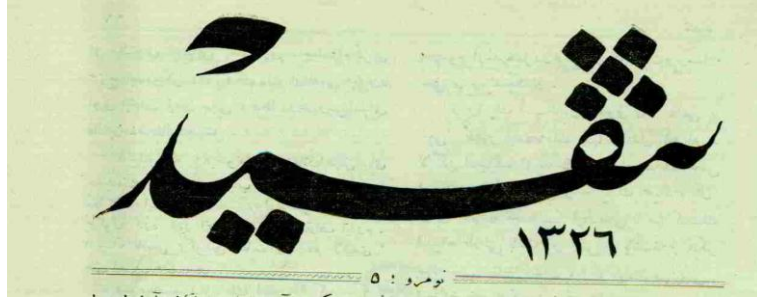 تنقيد
١٣٢٦
نومرو : ٥